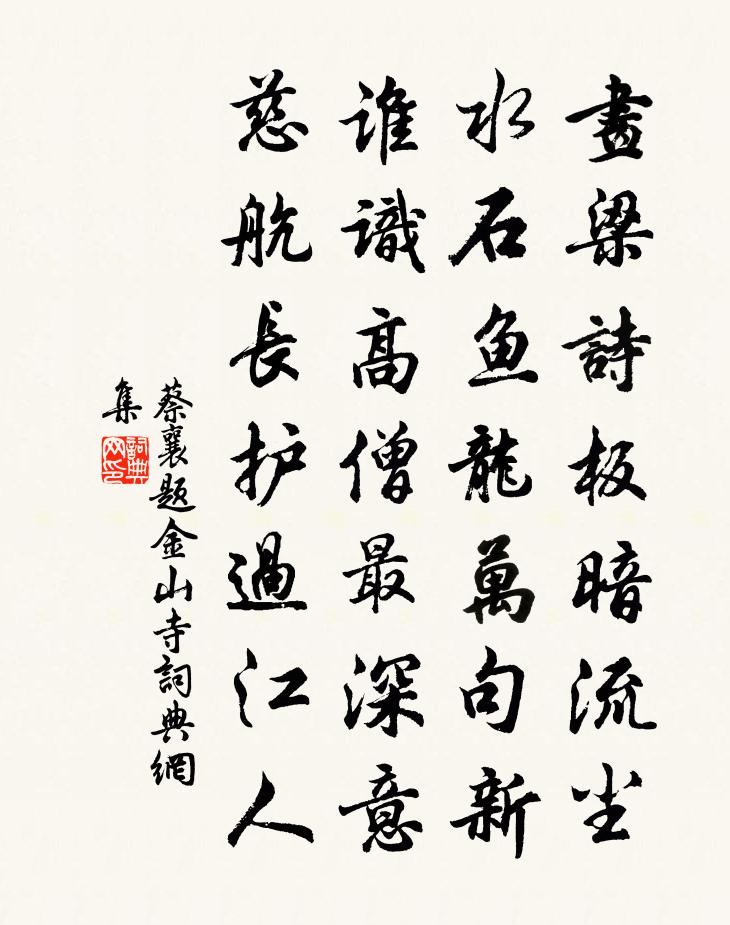 畫梁詩板暗流尘
水石魚龍萬句新
谁識高僧最深意
慈航長护過江人
蔡襄题金山寺詞典網
集
詞典
网印